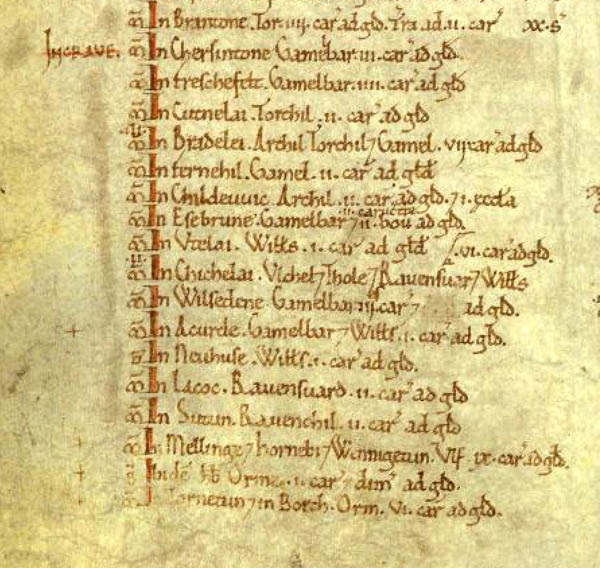 In Brantone. Tor. iiij. car' ad gld. Tra ad. ii. car' xx. s'
IN CRAVE.
In Chersintone Gamelbar. iii. car' ad gld.
In treschefelt. Gamelbar. iiii. car' ad gld
In Cutnelai. Torchil. ii. car' ad gld
In Bradelei. Archil Torchil ⁊ Gamel. vij car' ad gld
In fernehil. Gamel. ii. car' ad gld
In Childeuuic. Archil. ii. car' ad gld. ⁊ i. æccla
In Esebrune. Gamelbar ⁊ ii. bou' ad gld.
In Utelai. Wills. i. car' ad gld .vi. car' ad gld.
In Chichelai. Ulchel ⁊ Thole ⁊ Rauensuar ⁊ Wills
In Wilsedene. Gamelbar iij. car' ⁊ ad gld.
In Acurde. Gamelbar ⁊ Wills. i. car' ad gld.
In Neuhuse. Wills. i. car' ad gld.
In Lacoc. Rauensuard. ii. car' ad gld
In Sutun. Rauenchil. ii. car' ad gld
In Mellinge ⁊ hornebi ⁊ Wennigetun. Ulf ix. car' ad gld.
Ibidē hb Orme. i. car' ⁊ dim' ad gld.
Torneтun ⁊ in Borch. Orm. vi. car' ad gld.